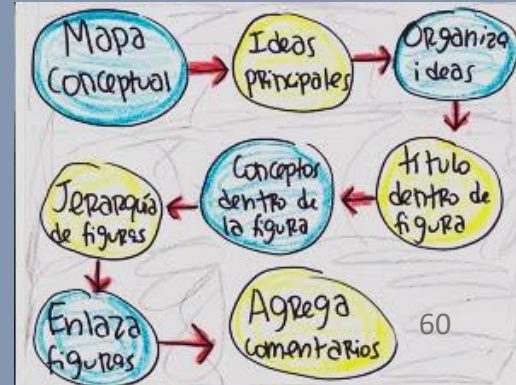 Mapa
Conceptual
Ideas
principales
Organiza
ideas
título
dentro de
figura
Conceptos
dentro de
la figura
Jerarquía
de figuras
Enlaza
figuras
Agrega
comentarios
60